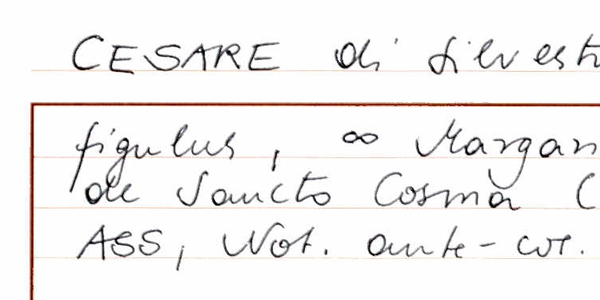 CESARE di Silvest
figulus, ∞ Margar
de Sancto Cosma (
ASS, Not. ante-cos.